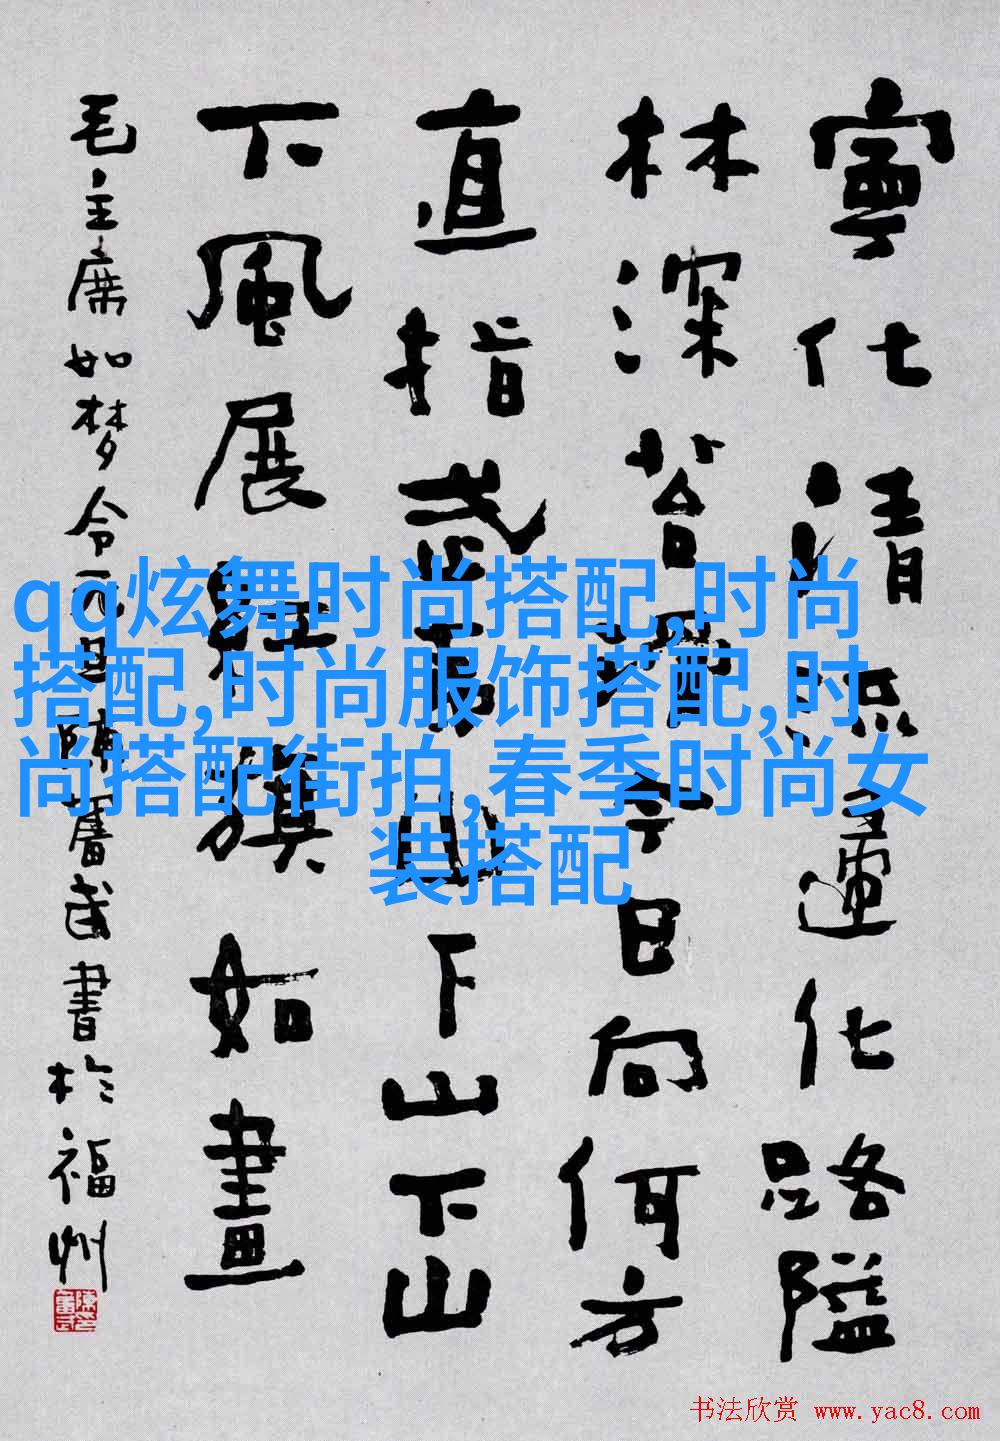 寧化清流運化路隘
林深苔滑今日向何方
直指武夷山下山下山
下風展紅旗如畫
毛主席如梦令元旦陳奮武書於福州
qq炫舞时尚搭配,时尚
搭配,时尚服饰搭配,时
尚搭配街拍,春季时尚女
装搭配
书法欣赏 www.yac8.com